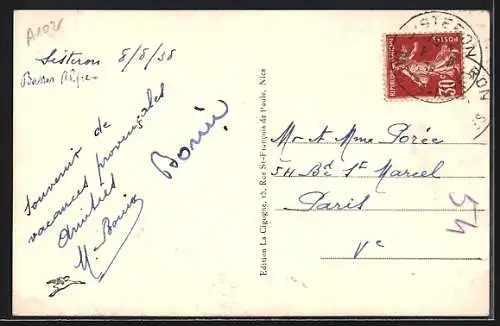 A1026
Sisteron 8/8/38
Basses Alpes
Souvenir de
vacances provençales
Amitiés
M. Borin
Borin
Edition La Cigogne, 15, Rue St-François de Paule, Nice
SISTERON
POSTES
30c
Mr et Mme Porée
54 Bd St Marcel
Paris
Ve
54